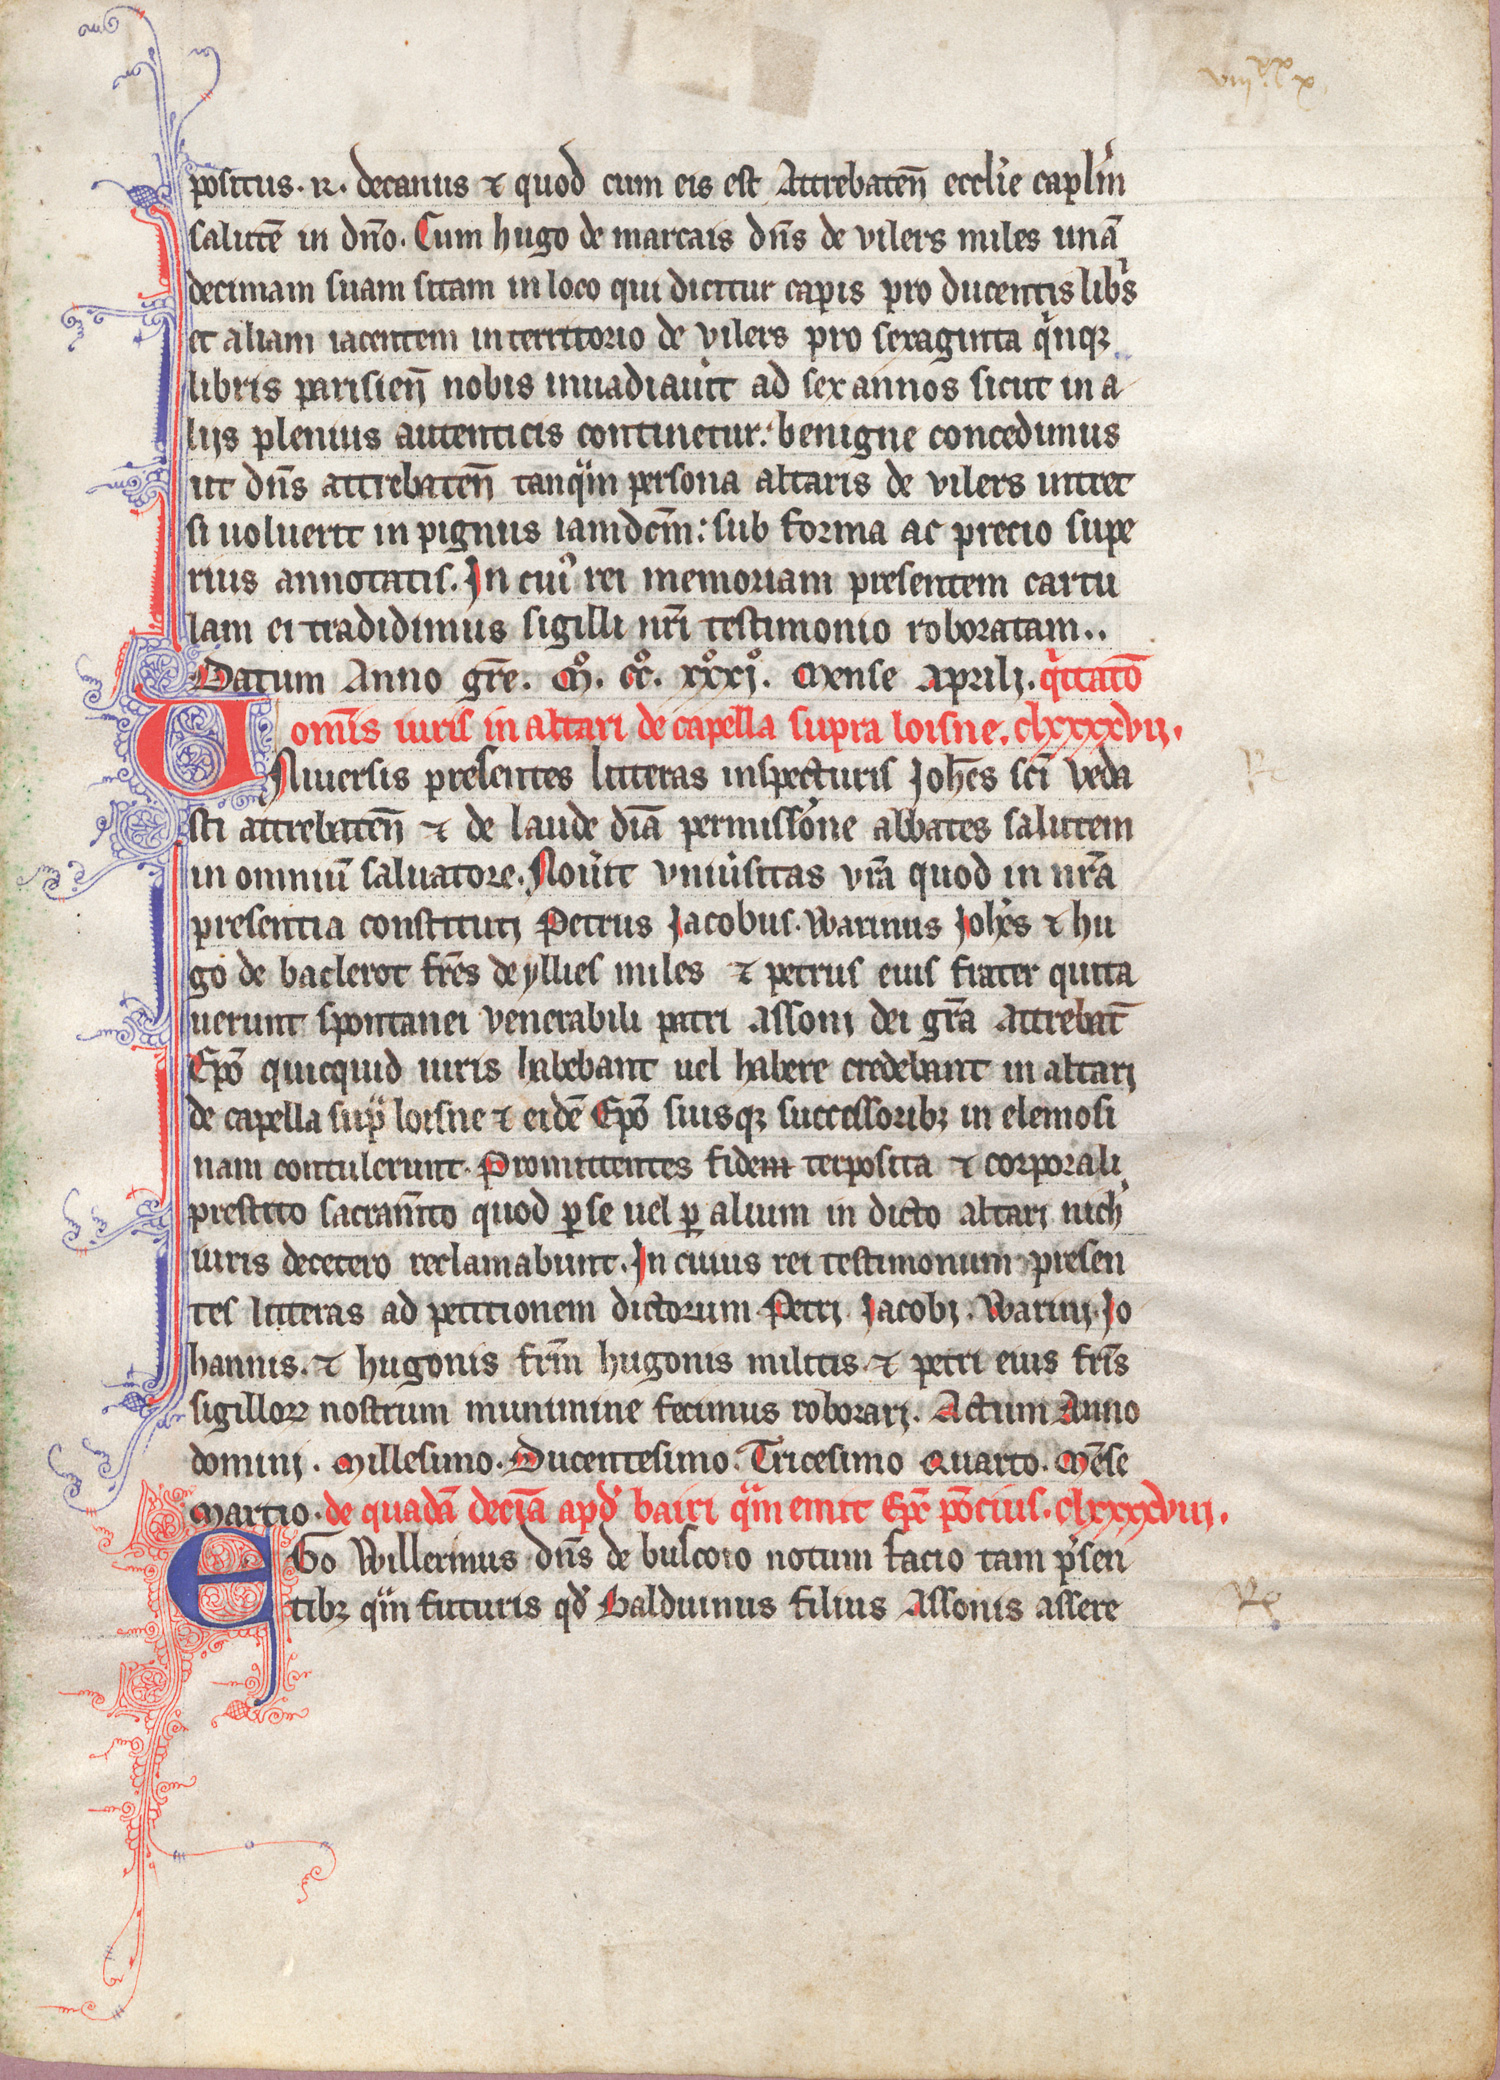 positus. N. decanus ⁊ quod cum eis est Attrebateñ eccl'ie capl'm
salutē in dño. Cum hugo de marcais dñs de vilers miles unā
decimam suam sitam in loco qui dicitur capis pro ducentis lib's
et aliam iacentem in territorio de vilers pro sexaginta q'nqꝫ
libris parisieñ nobis inuadiau't ad sex annos sicut in a
lijs plenius autenticis continetur: benigne concedimus
ut dñs attrebateñ tanq̈m persona altaris de vilers intret
si uoluerit in pignus iamdc̄m: sub forma ac precio supe
rius annotatis. In cui' rei memoriam presentem cartu
lam ei tradidimus sigilli nr̄i testimonio roboratam..
Datum Anno gr̄e. M°. cc°. xxx°j°. Mense Aprilj. q'itatō
om̄is iuris in altari de capella supra loisne. clxxxxvij.
Niuersis presentes litteras inspecturis Joh̄es sc̄i veda
sti attrebateñ ⁊ de laude diā permiss'one abbates salutem
in omniū saluatore. Nou'it vniu'sitas vr̄a quod in nr̄a
presentia constitutj Petrus Jacobus. Warinus Joh'es ⁊ hu
go de baclerot fr̄es de yllies miles ⁊ petrus eius frater quita
uerunt spontanei venerabili patri Assonj dei gr̄a Attrebat̄
Ep̄o quicquid iuris habebant uel habere credebant in altarj
de capella sup̈ loisne ⁊ eidē Ep̄o suisqꝫ successoribꝫ in elemosi
nam contulerunt. Promittentes fidem terposita ⁊ corporali
prestito sacram̄to quod ꝑ se uel ꝑ alium in dicto altari nich'
iuris decetero reclamabunt. In cuius rei testimonium presen
tes litteras ad petitionem dictorum Petri Jacobj. Warinj. Jo
hannis. ⁊ hugonis fr̄m hugonis militis. ⁊ petri eius fr̄is
sigilloꝝ nostrum munimine fecimus roborarj. Actum Anno
dominj. Millesimo. Ducentesimo. Tricesimo Quarto. Mēse
Martio. de quadā deciā apd' bairi q̈m emit Ep̄c pōcius. clxxxxviij.
EGo Willermus dñs de buscoio notum facio tam p'sen
tibꝫ q̈m futuris qd' Balduinus filius Assonis assere